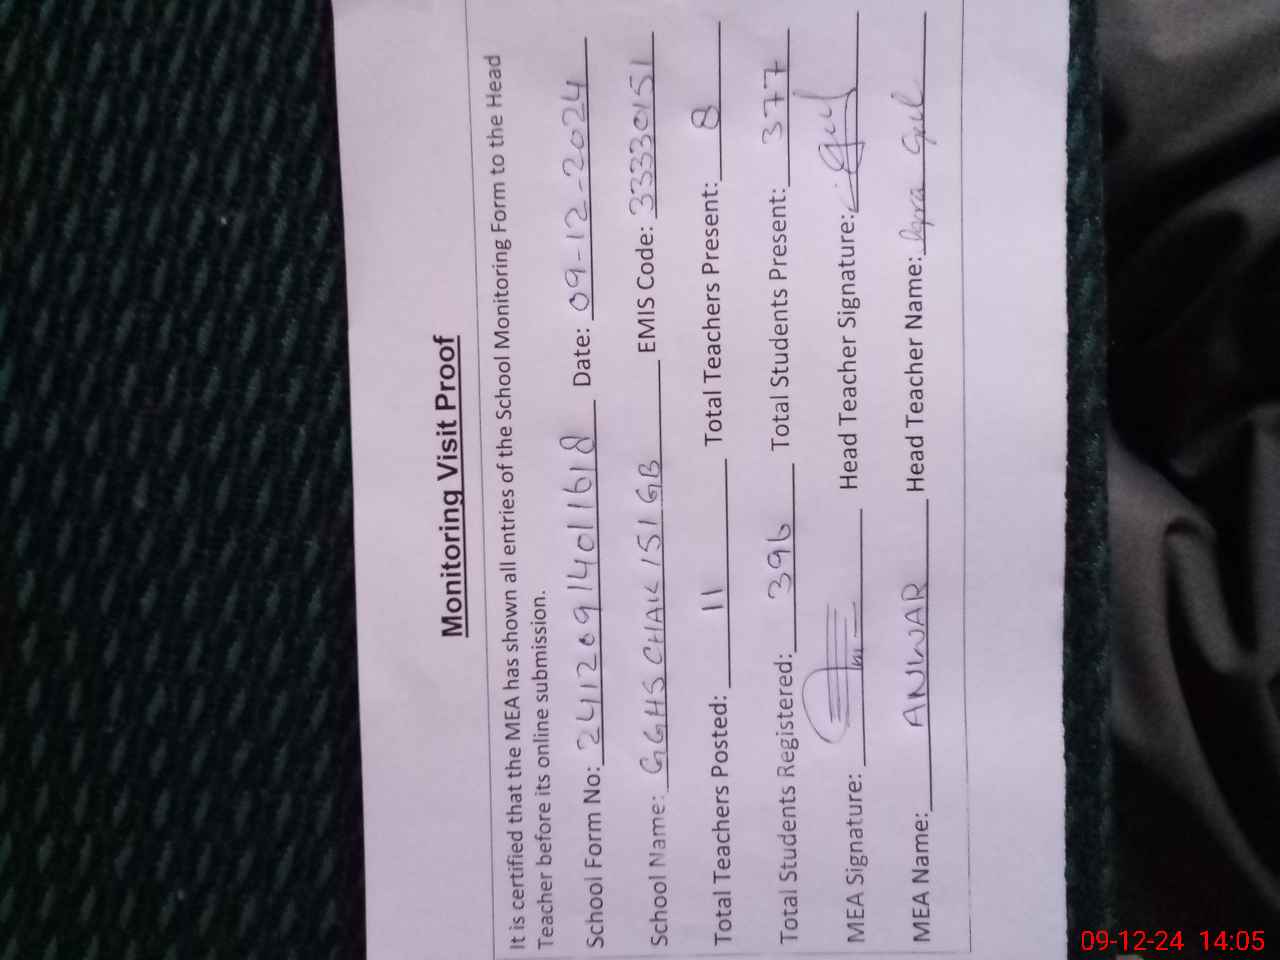 Monitoring Visit Proof
It is certified that the MEA has shown all entries of the School Monitoring Form to the Head
Teacher before its online submission.
School Form No: 241209 14011618 Date: 09-12-2024
School Name: GGHS CHAK 151 GB EMIS Code: 33330151
Total Teachers Posted: 11 Total Teachers Present: 8
Total Students Registered: 396 Total Students Present: 377
MEA Signature: Head Teacher Signature: Gul
MEA Name: ANWAR Head Teacher Name: Iqra Gul
09-12-24 14:05